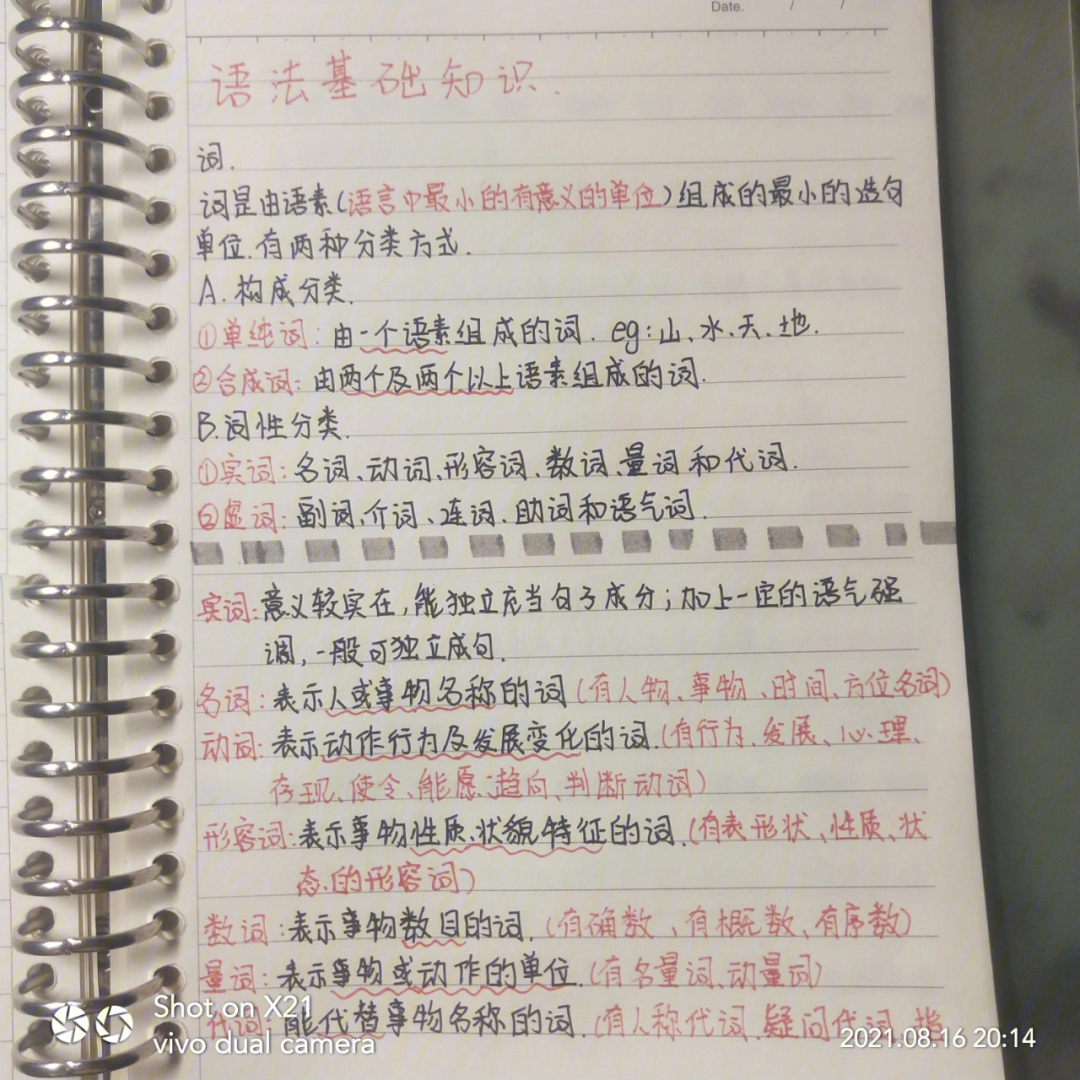 Date. / /
语法基础知识.
词.
词是由语素(语言中最小的有意义的单位)组成的最小的造句
单位.有两种分类方式.
A.构成分类.
①单纯词:由一个语素组成的词. eg:山、水、天、地.
②合成词:由两个及两个以上语素组成的词.
B.词性分类.
①实词:名词、动词、形容词、数词、量词和代词.
②虚词:副词、介词、连词、助词和语气词.
实词:意义较实在,能独立充当句子成分;加上一定的语气强
调,一般可独立成句.
名词:表示人或事物名称的词(有人物、事物、时间、方位名词)
动词:表示动作行为及发展变化的词.(有行为、发展、心理、
存现、使令、能愿、趋向、判断动词)
形容词:表示事物性质、状貌、特征的词.(有表形状、性质、状
态的形容词)
数词:表示事物数目的词.(有确数、有概数、有序数)
量词:表示事物或动作的单位.(有名量词、动量词)
代词:能代替事物名称的词.(有人称代词、疑问代词、指
Shot on X21
vivo dual camera
2021.08.16 20:14